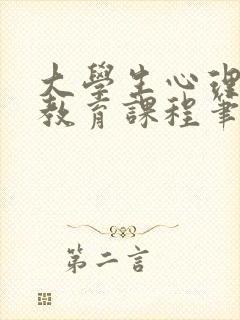 大學生心理
教育課程筆
第二言